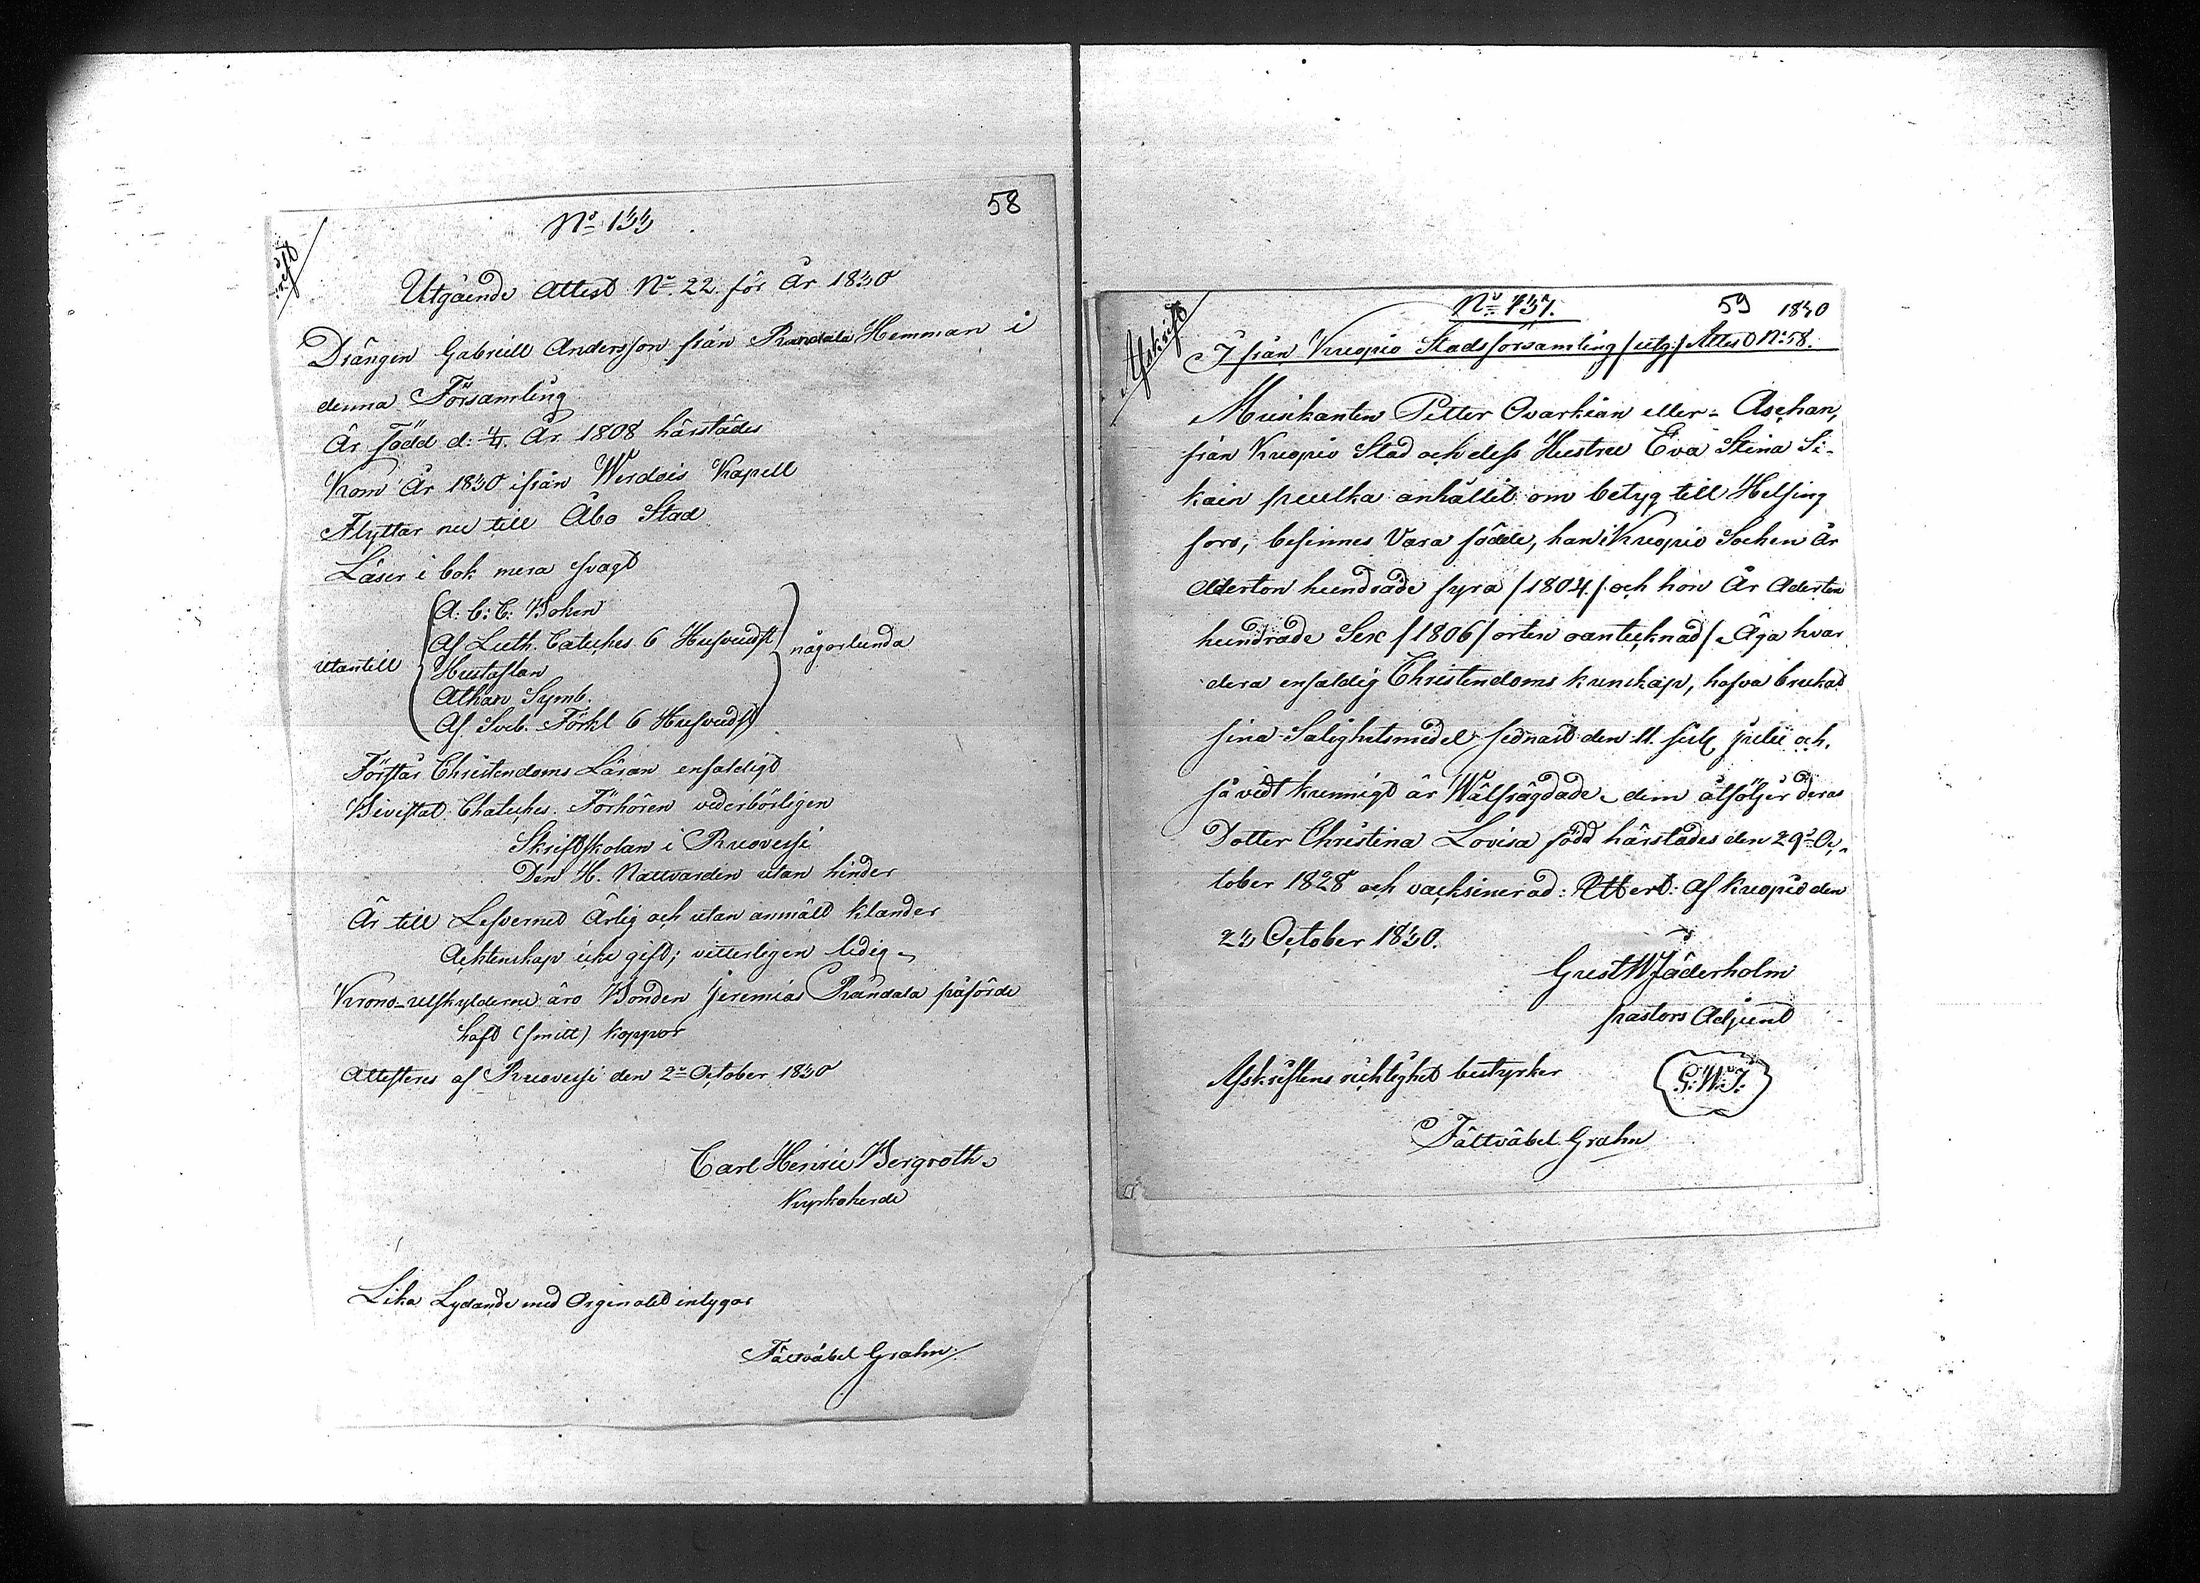 58
No 133
Utgående Attest No 22 för År 1830
Drängen Gabriell Andersson från Randala Hemman i
denna Församling
Är född d: 4/4 År 1808 härstädes
Kom År 1830 ifrån Werdois Kapell
Flyttar nu till Åbo Stad
Läser i bok mera svagt
utantill
A: b: C: Boken
Af Luth. Cateches. 6 Hufvudst
Hustaflan
Athan. Symb.
Af Sveb. Förkl 6 Hufvudst
någorlunda
Förstår Christendoms Läran enfaldigt
Bivistat Chateches. Förhören vederbörligen
Skriftskolan i Ruovesi
Den H. Nattvarden utan hinder
Är till Lefvernet Ärlig och utan anmäld klander
Äcktenskap icke gift; vitterligen ledig
Krono-utskylderne äro Bonden Jeremias Randala påförde
haft (smitt) koppor
Attesteras af Ruovesi den 2 October 1830
Carl Henric Bergroth
Kyrkoherde
Lika Lydande med Orginalet intygar
Fältväbel Grahn
Afskrift
No 737.
59 1830
Ifrån Kuopio Stadsförsamling /utg:/ Attest No 58.
Musikanten Petter Ovarkian eller Aschan,
från Kuopio Stad och dess Hustru Eva Stina Si-
kain hvilka anhållit om betyg till Helsing
fors, befinnes vara födde, han i Kuopio Socken År
Aderton hundrade fyra /1804./ och hon År Aderton
hundrade Sex /1806/ orten oantecknad/ Äga hvar
dera enfaldig Christendoms kunskap, hafva brukat
sina Salighetsmedel sednast den 11. sistl Julii och,
så vidt kunnigt är Wälfrägdade dem åtföljer deras
Dotter Christina Lovisa född härstädes den 29 Oc-
tober 1828 och vacksinerad: Utterd: af Kuopio den
23 October 1830.
Gust W Jäderholm
pastors Adjunct
Afskriftens richtighet bestyrker
G:W:J:
Fältväbel Grahn